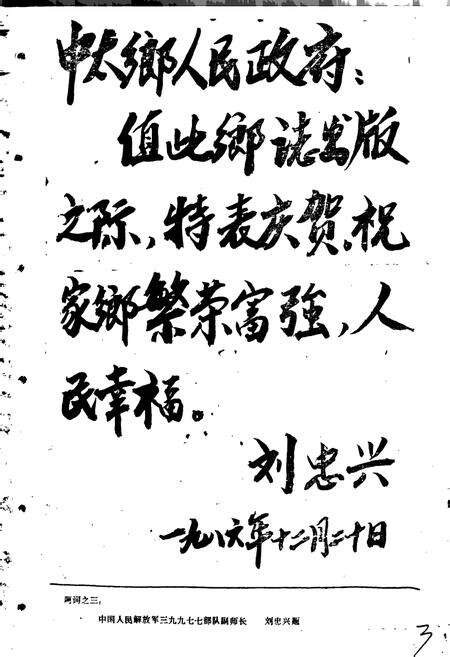 中太鄉人民政府：
值此鄉誌出版
之际，特表庆贺，祝
家鄉繁荣富强，人
民幸福。
刘忠兴
一九八六年十二月二十日
题词之三：
中国人民解放军三九九七七部队副师长 刘忠兴题
3